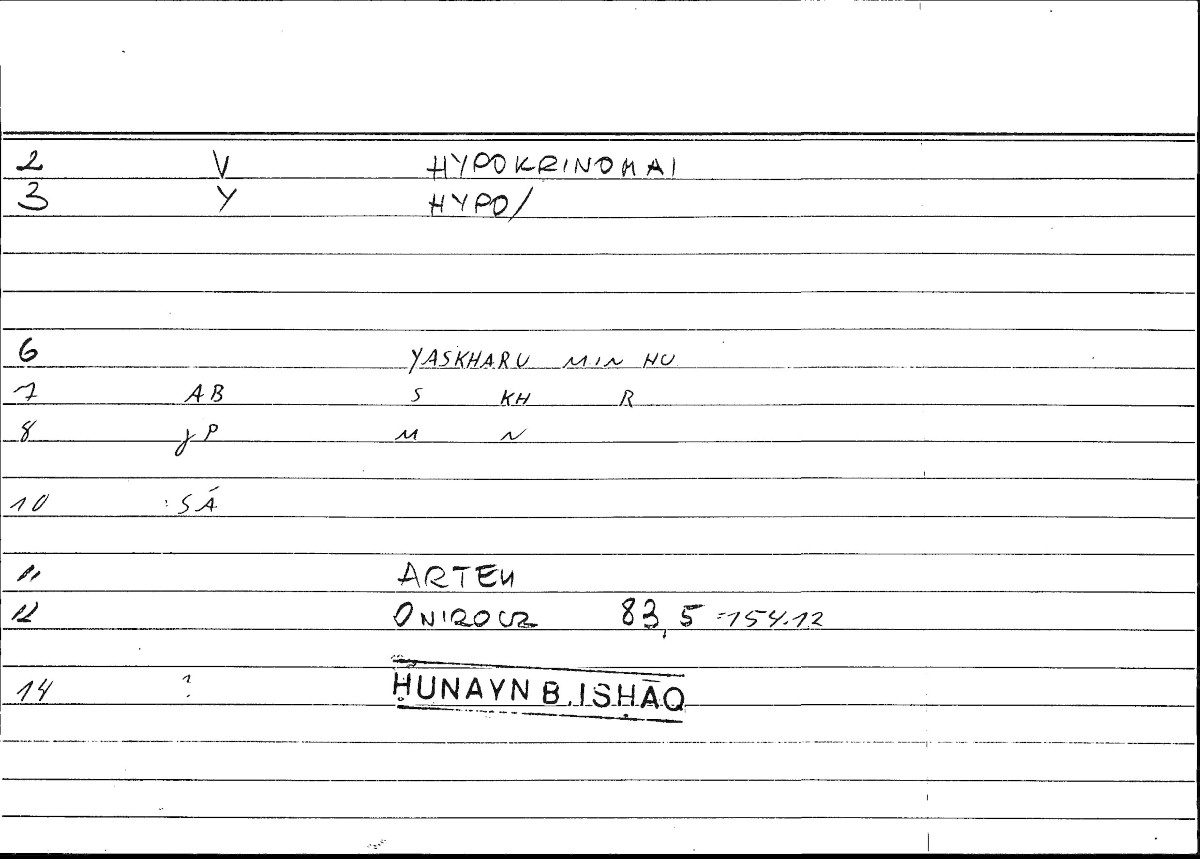 2 V HYPOKRINOMAI
3 Y HYPO/
6 YASKHARU MIN HU
7 AB S KH R
8 γP M N
10 :SĀ
11 ARTEM
12 ONIROCR 83,5 =154.12
14 ? ḤUNAYN B. ISḤĀQ